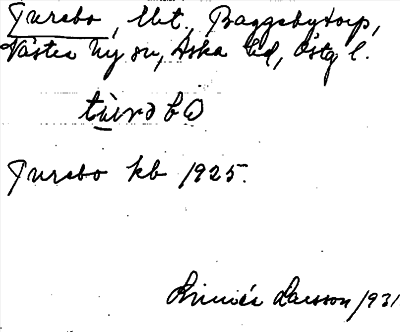 Turebo, Utt, Baggebytorp,
Västra Ny sn, Aska hd, Östg l.
tùrə bO
Turebo kb 1925.
Linnéa Larsson 1931